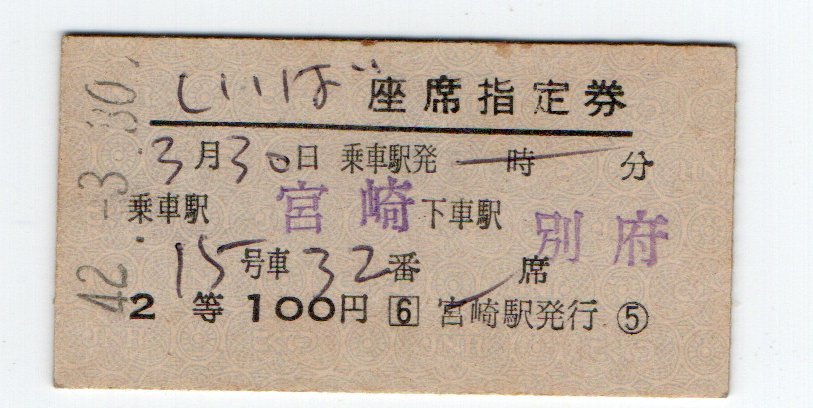 しいば 座席指定券
3月30日 乗車駅発 時 分
乗車駅 宮崎 下車駅 別府
15号車 32番 席
2 等 100円 6 宮崎駅発行 ⑤
42.-3.30